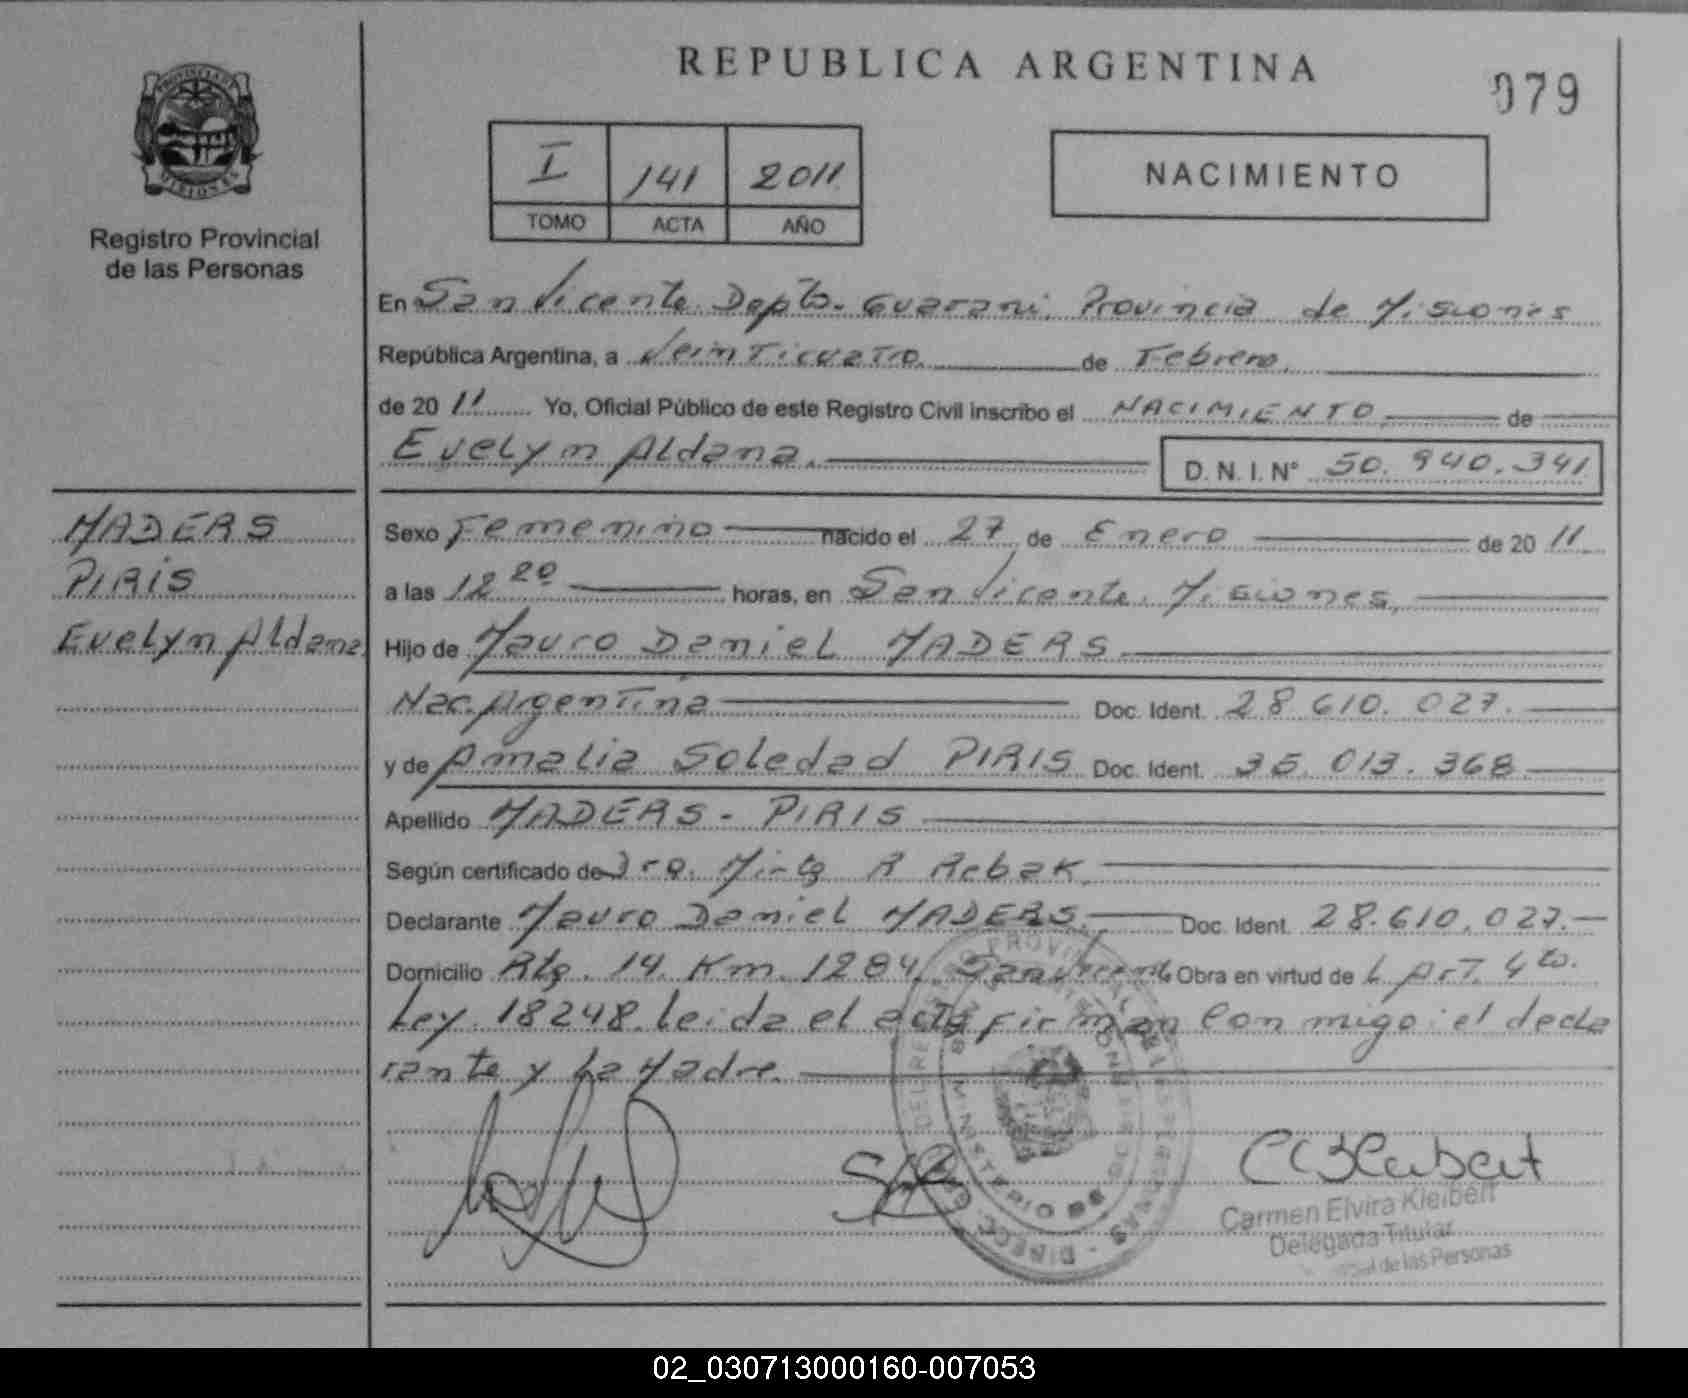 REPUBLICA ARGENTINA
079
PROVINCIA DE
MISIONES
Registro Provincial
de las Personas
I 141 2011
TOMO ACTA AÑO
NACIMIENTO
En San Vicente Depto. Guarani, Provincia de Misiones
República Argentina, a Veinticuatro de Febrero
de 20 11 Yo, Oficial Público de este Registro Civil inscribo el NACIMIENTO de
Evelyn Aldana. D. N. I. N° 50.940.341
MADERS
PIRIS
Evelyn Aldana
Sexo Femenino nacido el 27 de Enero de 20 11
a las 12 20 horas, en San Vicente, Misiones,
Hijo de Mauro Daniel MADERS
Nac. Argentina Doc. Ident. 28.610.027.
y de Amalia Soledad PIRIS Doc. Ident. 35.013.368
Apellido MADERS - PIRIS
Según certificado de Dra. Mirta R Rebak
Declarante Mauro Daniel MADERS Doc. Ident. 28.610.027.
Domicilio Rta. 14 Km. 1284, San Vicente Obra en virtud de L Art. 4to.
Ley 18248. leida el acta firman Con migo: el decla
rante y La Madre.
Carmen Elvira Kleibert
Delegada Titular
de las Personas
02_030713000160-007053